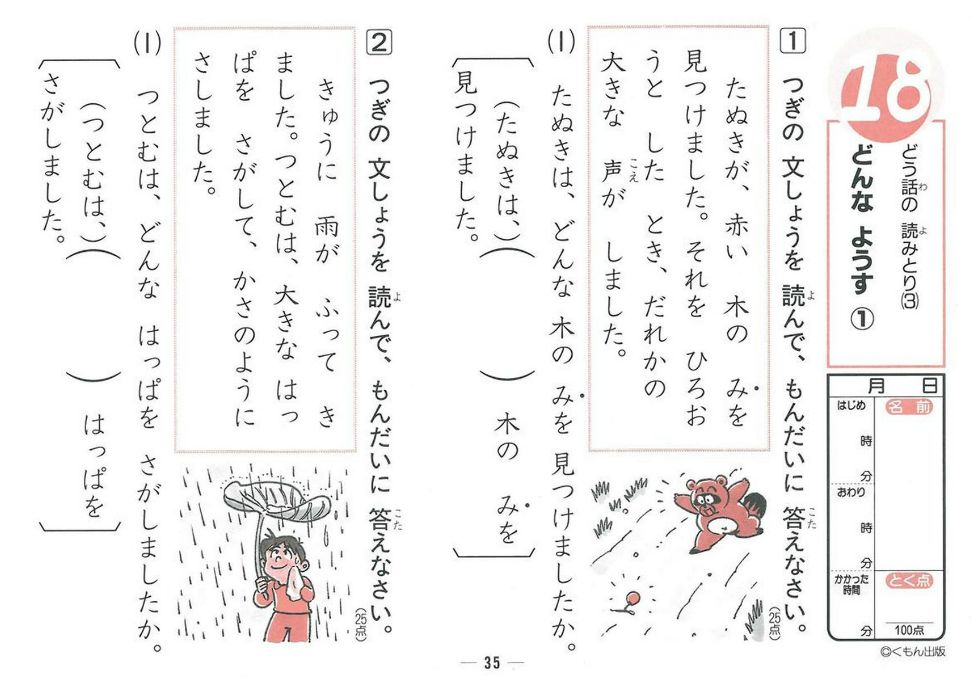 18
どう話の 読みとり(3)
わ
よ
どんな ようす ①
月 日
はじめ
時
分
おわり
時
分
かかった
時間
分
名前
とく点
100点
©くもん出版
1 つぎの 文しょうを 読んで、もんだいに 答えなさい。
よ
こた
(25点)
たぬきが、赤い 木の みを
見つけました。それを ひろお
うと した とき、だれかの
大きな 声が しました。
こえ
(1) たぬきは、どんな 木の みを 見つけましたか。
(たぬきは、)( ) 木の みを
見つけました。
2 つぎの 文しょうを 読んで、もんだいに 答えなさい。
よ
こた
(25点)
きゅうに 雨が ふって き
ました。つとむは、大きな はっ
ぱを さがして、かさのように
さしました。
(1) つとむは、どんな はっぱを さがしましたか。
(つとむは、)( ) はっぱを
さがしました。
— 35 —